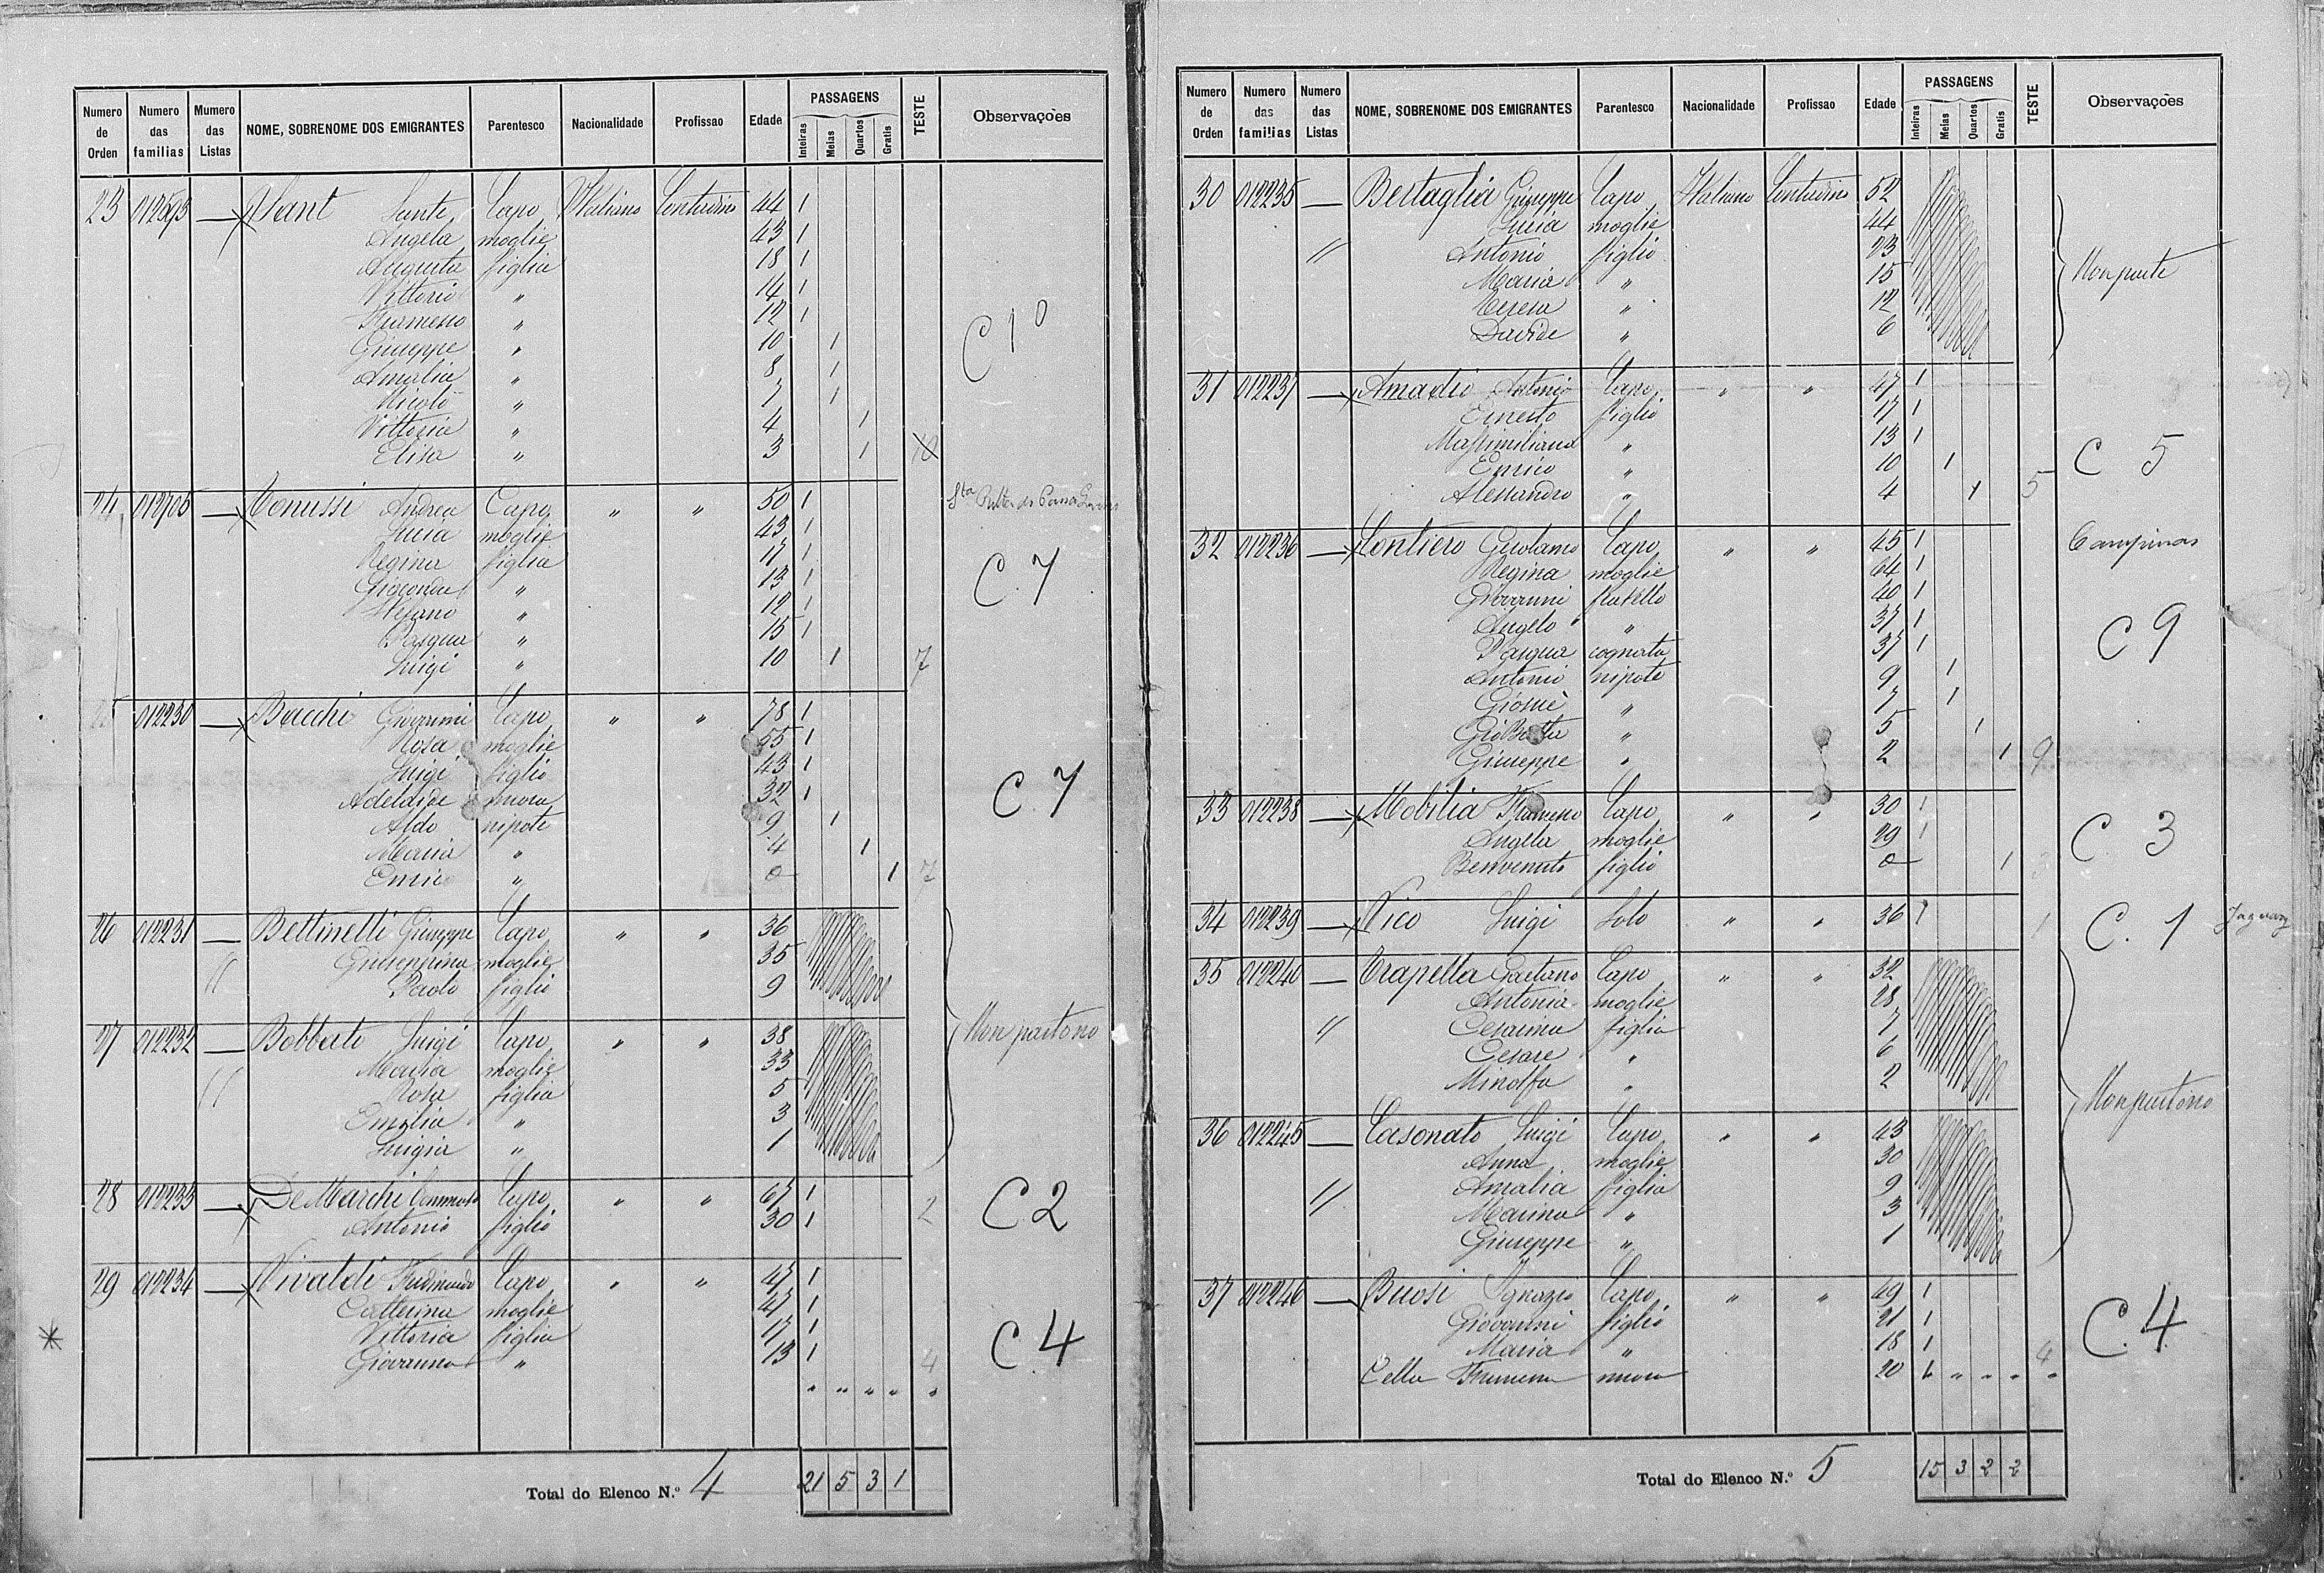 Numero de Orden Numero das familias Mumero das Listas NOME, SOBRENOME DOS EMIGRANTES Parentesco Nacionalidade Profissao Edade PASSAGENS Inteiras Meias Quartos Gratis TESTE Observaçoès
23 — Sant Sante Capo Italiano Contadino 44 1
Angela moglie 43 1
Augusta figlia 18 1
Vittorio " 14 1
Francesco " 12 1
Giuseppe " 10 1 C 10
Amalia " 8 1
Nicolò " 7 1
Vittoria " 4 1
Elisa " 3 1 10
24 012705 — Tonussi Andrea Capo " " 50 1
Lucia moglie 43 1
Regina figlia 17 1
Gioconda " 13 1 C. 7
Stefano " 12 1
Pasqua " 15 1
Luigi " 10 1 7
25 012230 — Bacchi Giovanni Capo " " 78 1
Rosa moglie 55 1
Luigi figlio 43 1
Adelaide nuora 32 1 C. 7
Aldo nipote 9 1
Maria " 4 1
Enrico " 0 1 7
26 012231 — Bettinelli Giuseppe Capo " " 36
Giuseppina moglie 35
Paolo figlio 9
27 012232 — Bobbato Luigi Capo " " 38 Non partono
Maria moglie 33
Rosa figlia 5
Emilia " 3
Luigia " 1
28 012233 — De Marchi Capo " " 67 1 2 C. 2
Antonio figlio 30 1
29 012234 — Vivaldi Ferdinando Capo " " 47 1
Catterina moglie 47 1
Vittoria figlia 17 1 C. 4
Giovanna " 13 1 4
" " " " "
Total do Elenco N.º 4 21 5 3 1
Numero de Orden Numero das familias Numero das Listas NOME, SOBRENOME DOS EMIGRANTES Parentesco Nacionalidade Profissao Edade PASSAGENS Inteiras Meias Quartos Gratis TESTE Observaçoès
30 012235 — Bertaglia Giuseppe Capo Italiano Contadino 52
Lucia moglie 44
// Antonio figlio 23 Non parte
Maria " 15
Teresa " 12
Davide " 6
31 012237 — Amadio Antonio Capo " " 47 1
Ernesto figlio 17 1
Massimiliano " 13 1
Enrico " 10 1 C 5
Alessandro " 4 1 5
32 012236 — Contiero Girolamo Capo " " 45 1 Campinas
Regina moglie 44 1
Giovanni fratello 40 1
Angelo " 37 1 C 9
Pasqua cognata 37 1
Antonio nipote 9 1
Giosuè " 7 1
GioBatta " 5 1
Giuseppe " 2 1 9
33 012238 — Mobilia Francesco Capo " " 30 1
Angela moglie 29 1 C. 3
Benvenuto figlio 0 1 3
34 012239 — Vico Luigi Solo " " 36 1 1 C. 1 Jaguary
35 012240 — Trapella Gaetano Capo " " 32
Antonia moglie 28
// Cesarina figlia 7
Cesare " 6
Minolfa " 2
Non partono
36 012245 — Casonato Luigi Capo " " 43
Anna moglie 30
// Amalia figlia 9
Marina " 3
Giuseppe " 1
37 012246 — Buosi Ignazio Capo " " 49 1
Giovanni figlio 21 1 C. 4
Maria " 18 1 4
Cella nuora 20 1 " " " "
Total do Elenco N.º 5 15 3 2 2